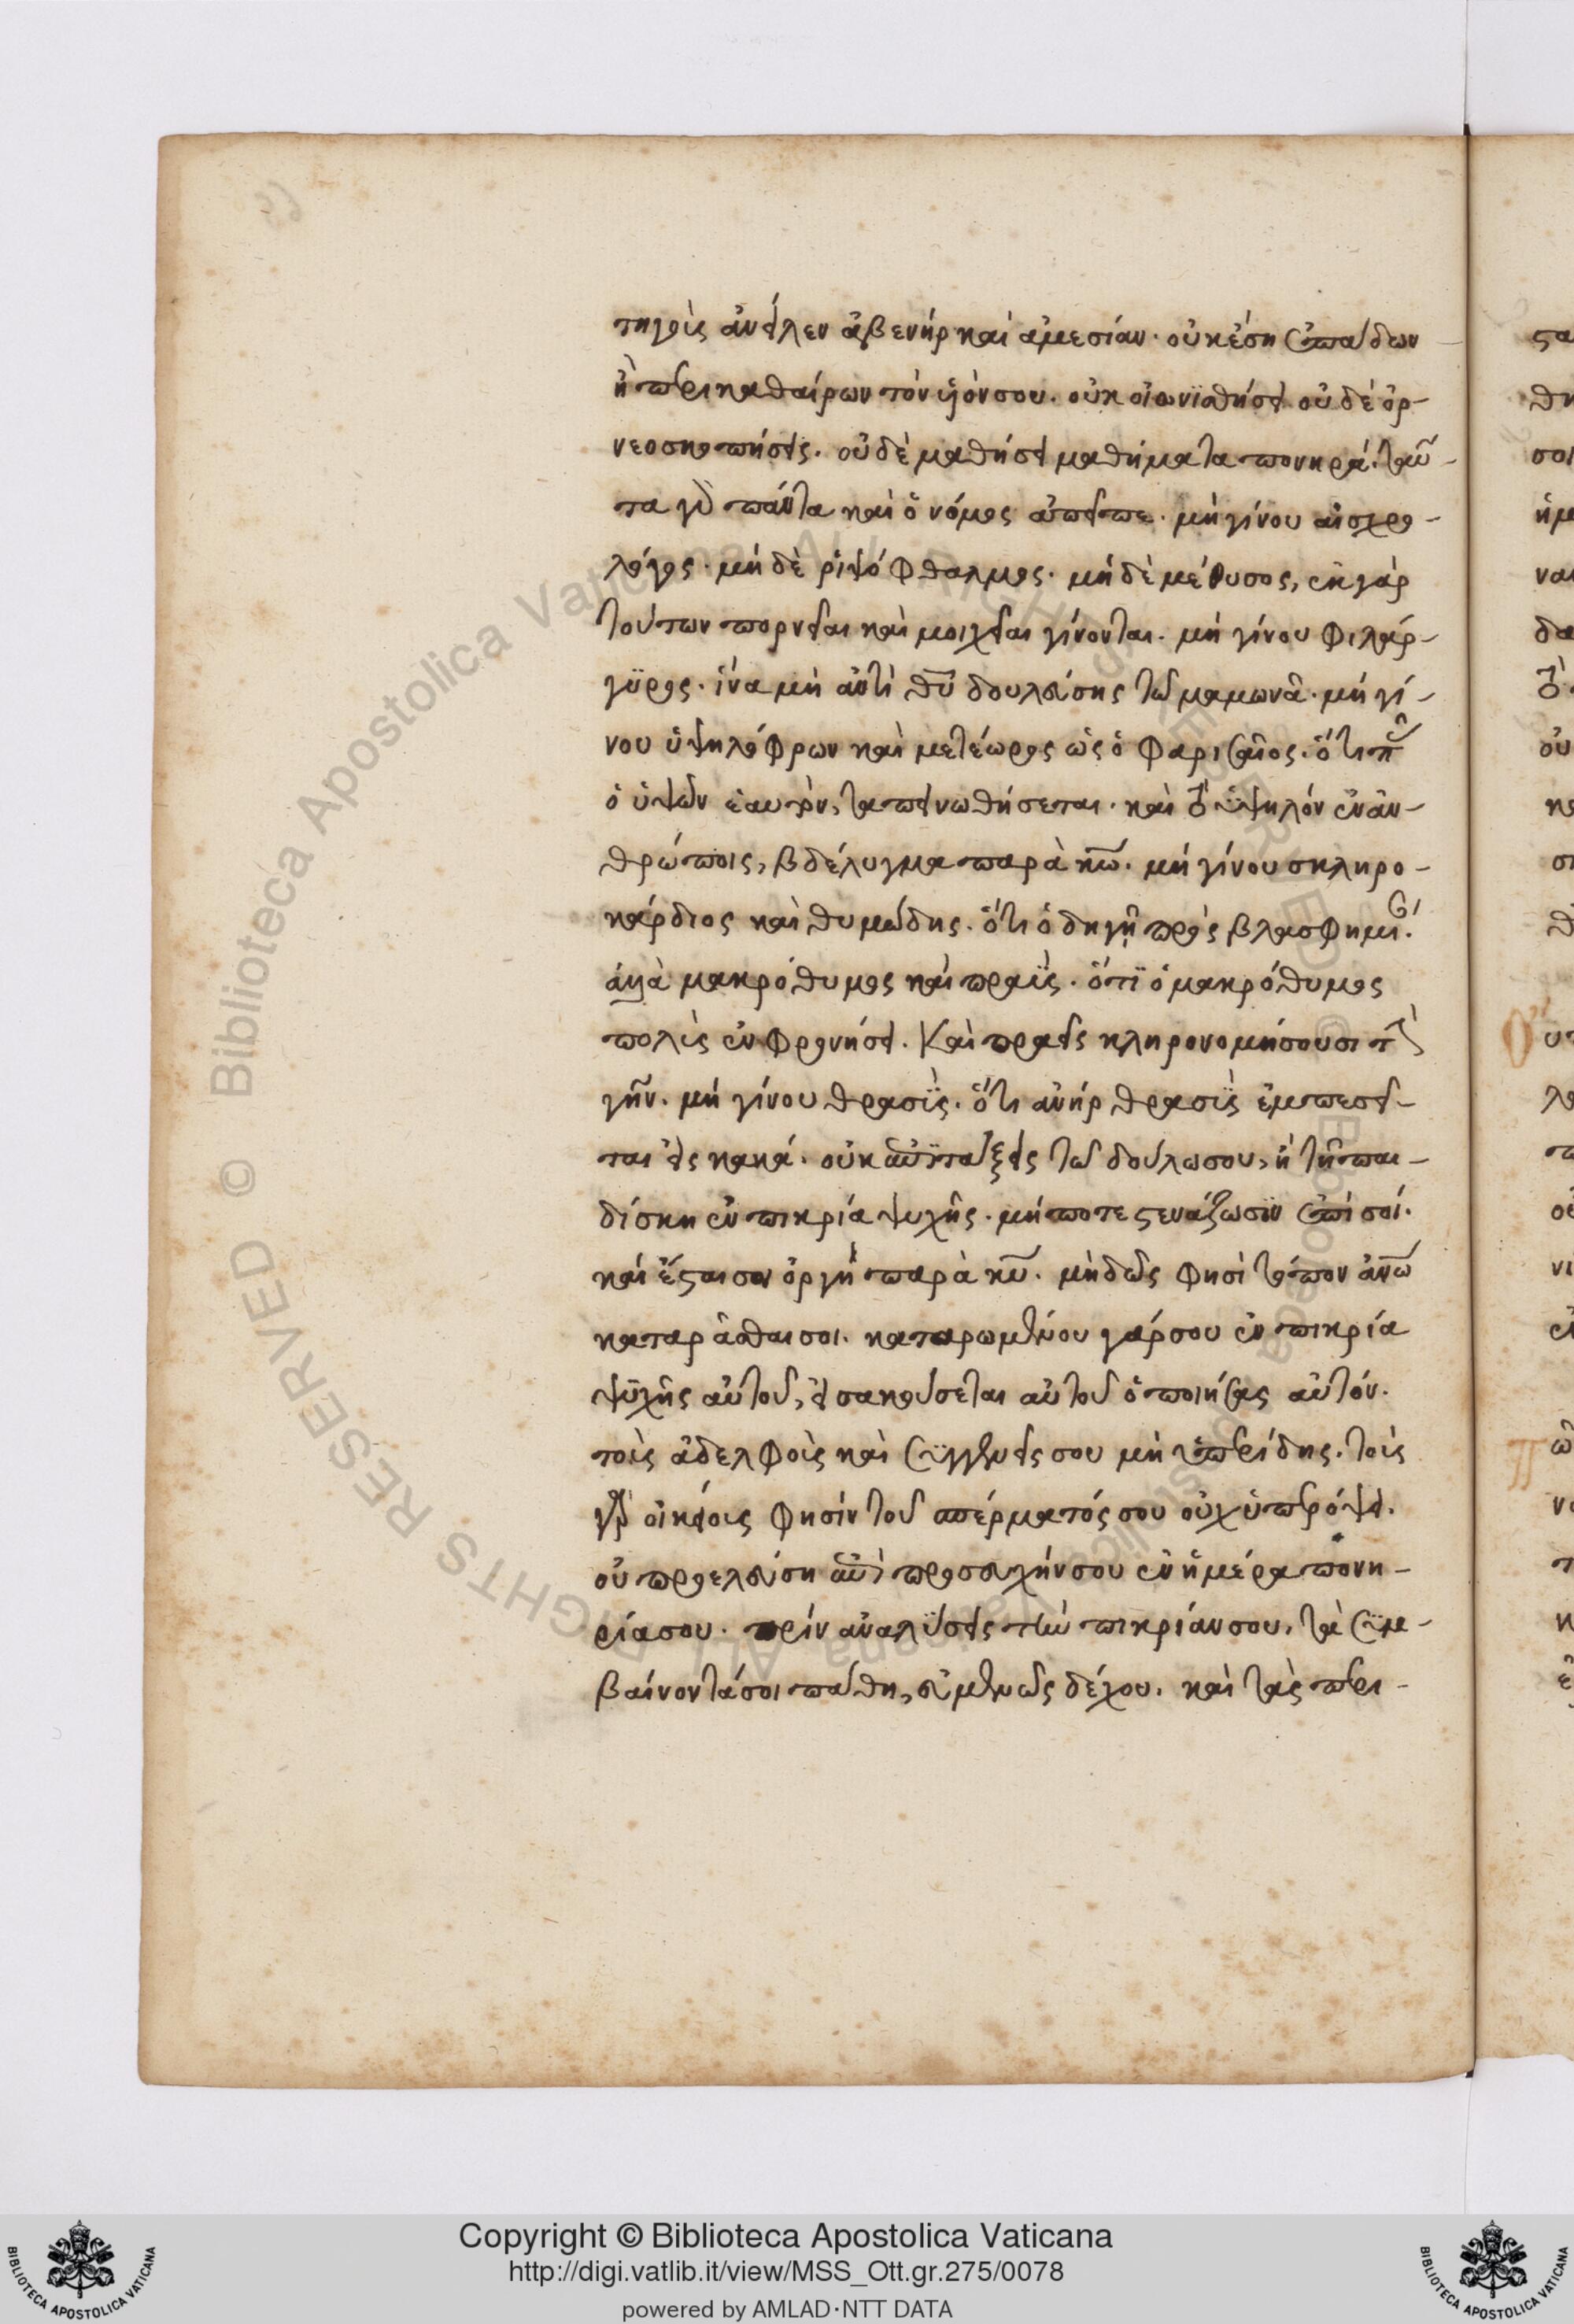 τηγοὶς ἀνεῖλεν ἀβενὴρ καὶ ἀμεσίαν. οὐκ ἔση ἐπαΐδων
ἢ περικαθαίρων τὸν υἱόν σου. οὐκ οἰωνϊσθήσει οὐδὲ ὀρ-
νεοσκοπήσεις. οὐδὲ μαθήσει μαθήματα πονηρά. ταῦ-
τα γὰρ πάντα καὶ ὁ νόμος ἀπεῖπε. μὴ γίνου αἰσχρο-
λόγος. μὴ δὲ ῥιψόφθαλμος. μὴ δὲ μέθυσος, ἐκ γὰρ
τούτων πορνεῖαι καὶ μοιχεῖαι γίνονται. μὴ γίνου φιλάρ-
γϋρος. ἵνα μὴ ἀντὶ θῦ δουλεύσης τῶ μαμωνᾶ. μὴ γί-
νου ὑψηλόφρων καὶ μετέωρος ὡς ὁ φαρισαῖος. ὅτι π
ὁ ὑψῶν ἑαυτὸν, ταπεινωθήσεται. καὶ τὸ ὑψηλόν ἐν ἀν-
θρώποις, βδέλυγμα παρὰ κω. μὴ γίνου σκληρο-
κάρδιος καὶ θυμώδης. ὅτι ὁδηγῆ πρὸς βλασφημι.
ἀλλὰ μακρόθυμος καὶ πραΰς. ὅτϊ ὁ μακρόθυμος
πολὺς ἐν φρονήσει. Καὶ πραεῖς κληρονομήσουσι τ
γῆν. μὴ γίνου θρασὺς. ὅτι ἀνὴρ θρασὺς ἐμπεσεῖ-
ται εἰς κακά. οὐκ ἐπϊτάξεις τῶ δούλω σου, ἢ τῆ παι-
δίσκη ἐν πικρία ψυχῆς. μήποτε στενάξωσϊν ἐπί σοί.
καὶ ἔσται σοι ὀργὴ παρὰ κυ. μὴ δῶς φησὶ τόπον ἀνω
καταρᾶσθαι σοι. καταρωμένου γάρ σου ἐν πικρία
ψϋχῆς αὐτοῦ, εἰσακούσεται αὐτοῦ ὁ ποιήσας αὐτόν.
τοὶς ἀδελφοὶς καὶ συγγενεῖς σου μὴ ὑπερίδης. τοὶς
γὰρ οἰκείοις φησίν τοῦ σπέρματός σου οὐχ ὑπερόψει.
οὐ προελεύση ἐπὶ προσευχήν σου ἐν ἡμέρα πονη-
ρία σου. πρίν ἀναλϋσεις τὴν πικρίαν σου, τὰ συμ-
βαίνοντά σοι πάθη, εὐμενῶς δέχου. καὶ τὰς περι-
Copyright © Biblioteca Apostolica Vaticana
http://digi.vatlib.it/view/MSS_Ott.gr.275/0078
powered by AMLAD·NTT DATA